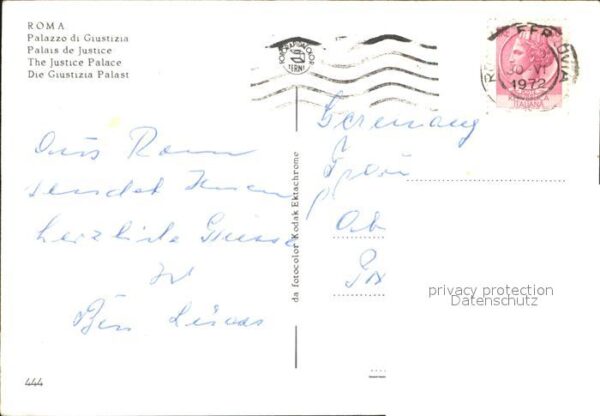 ROMA
Palazzo di Giustizia
Palais de Justice
The Justice Palace
Die Giustizia Palast
FERROVIA
30 VI
1972
ITALIANA
TERNI
Germany
Frau
Ob
Aus Rom
sendet Ihnen
herzliche Grüsse
Ihr
da fotocolor Kodak Ektachrome
privacy protection
Datenschutz
444